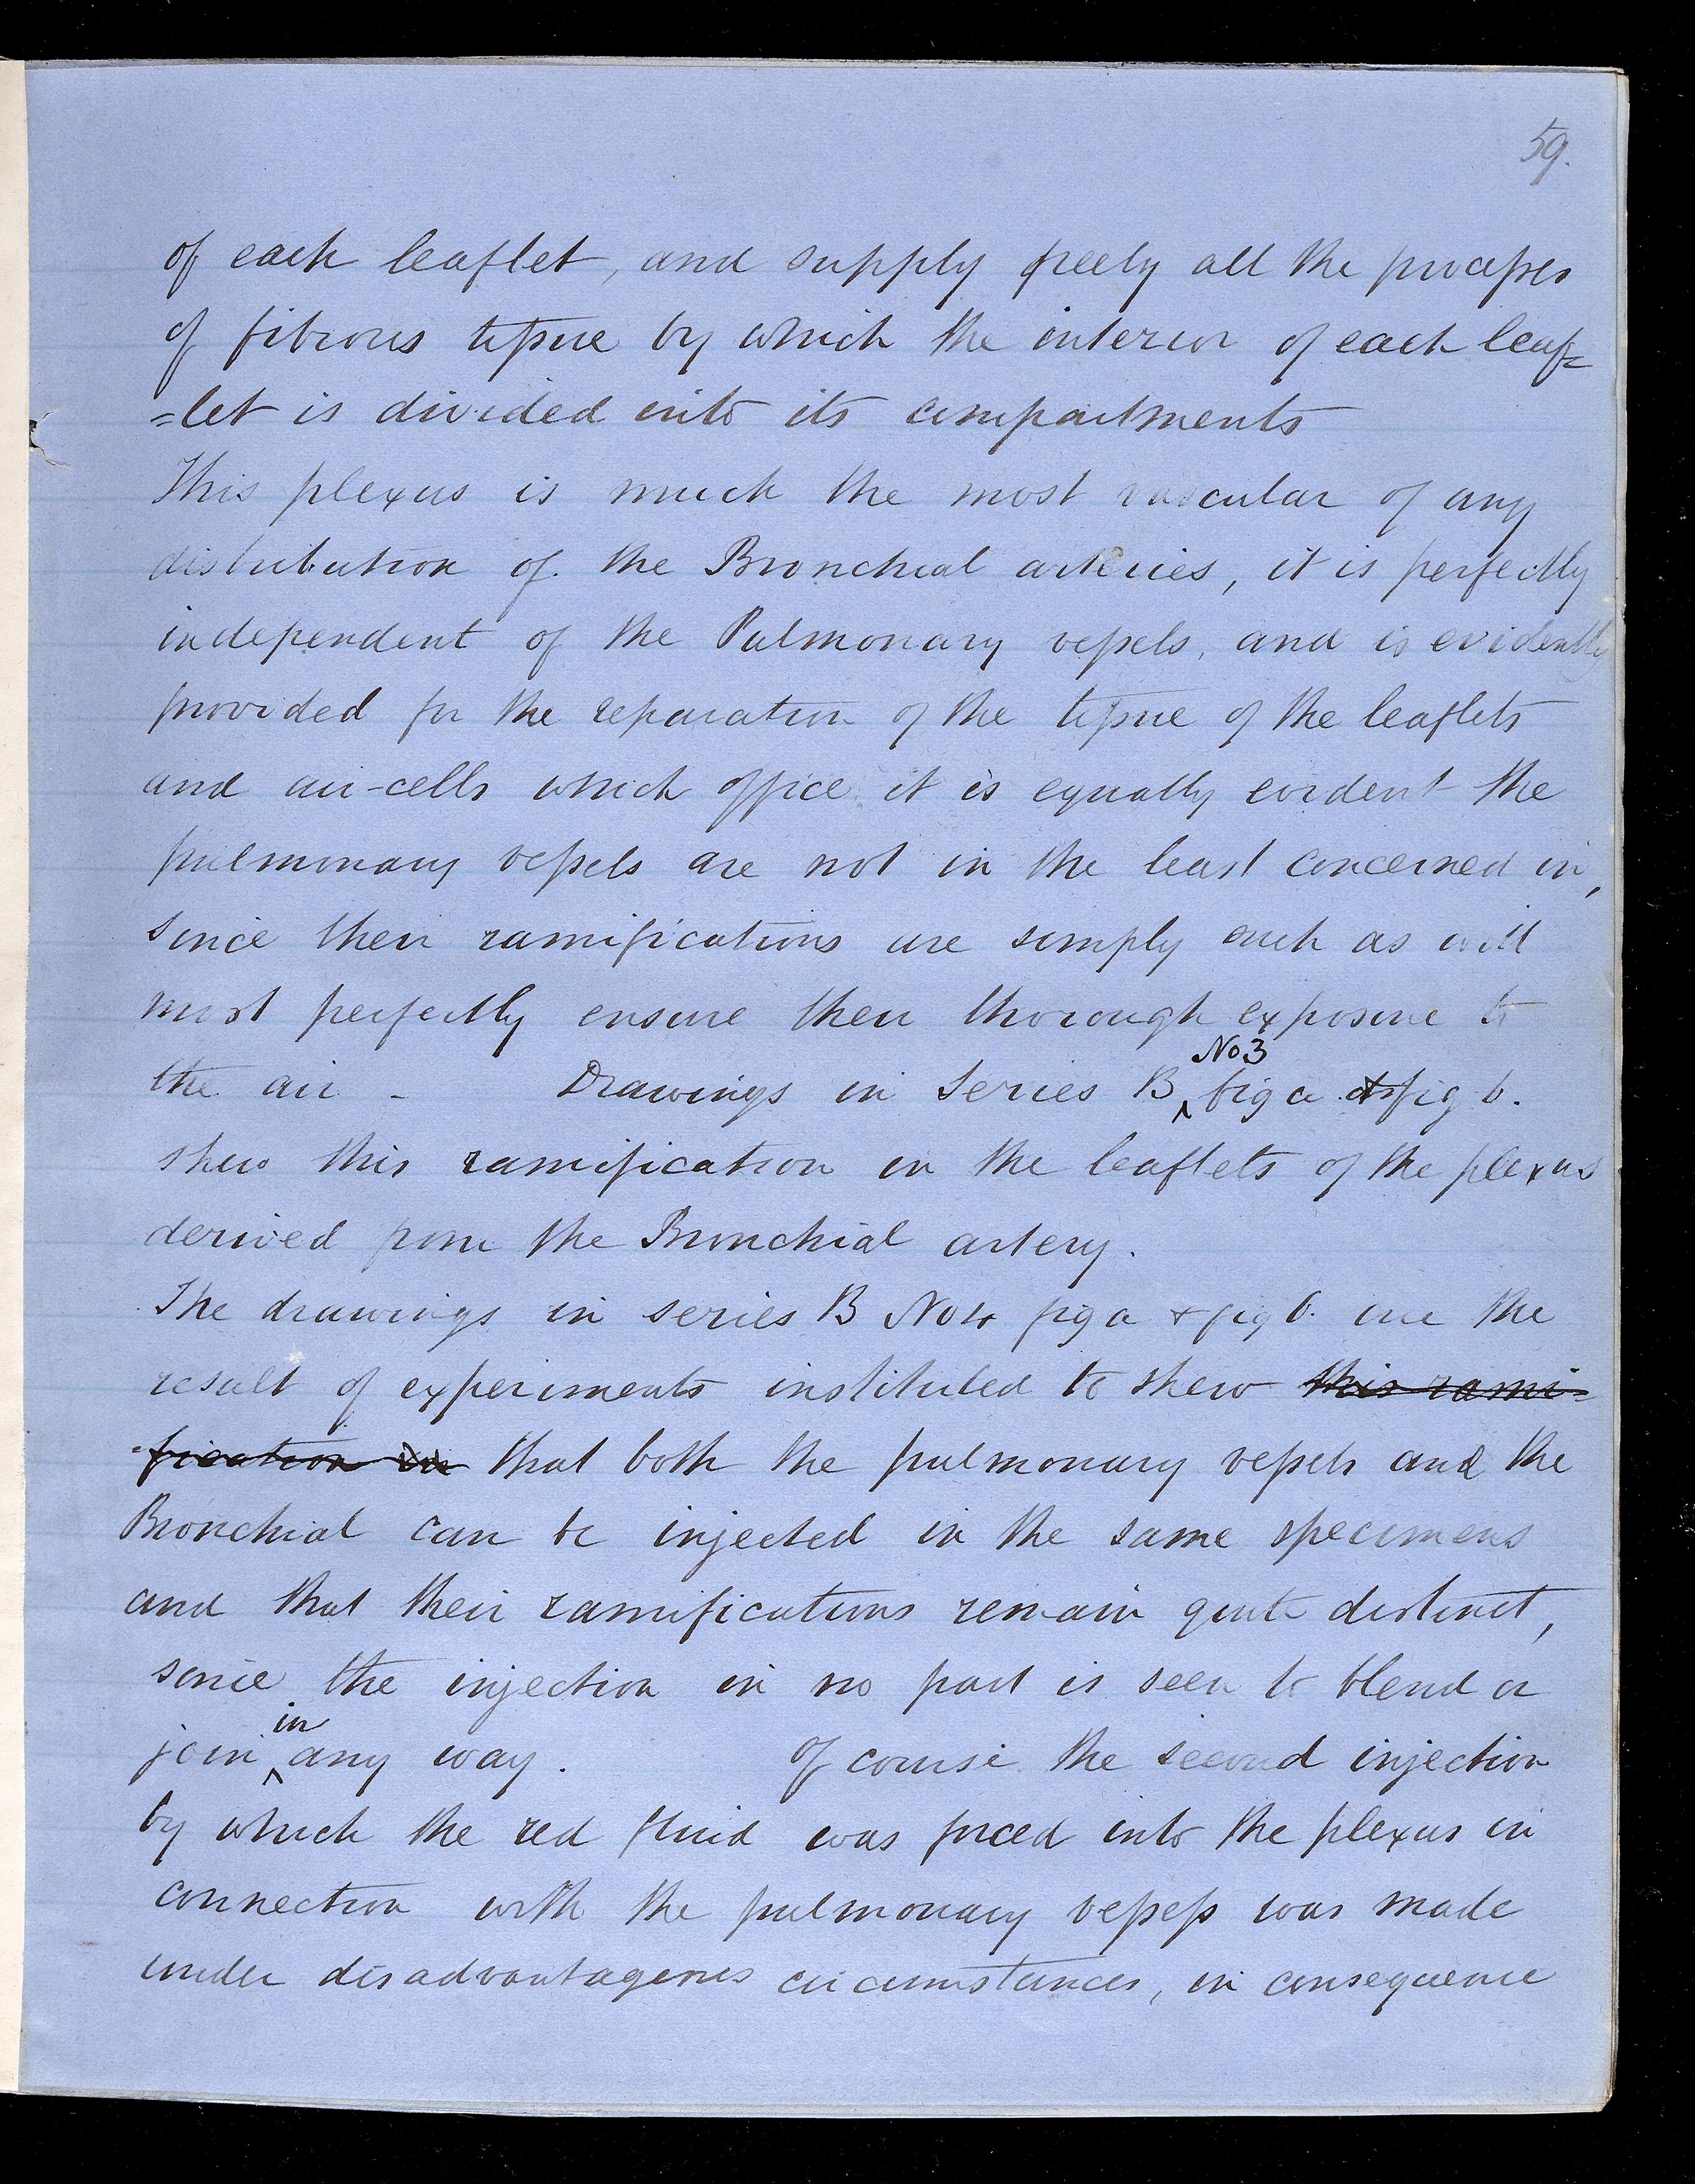 59.
of each leaflet, and supply freely all the processes
of fibrous tissue by which the interior of each leaf=
=let is divided into its compartments
This plexus is much the most vascular of any
distribution of the Bronchial arteries, it is perfectly
independent of the Pulmonary vessels, and is evidently
provided for the reparation of the tissue of the leaflets
and air-cells which office it is equally evident the
pulmonary vessels are not in the least concerned in,
since their ramifications are simply such as will
most perfectly ensure their thorough exposure to
No 3
the air - Drawings in Series B, fig a & fig b.
shew this ramification in the leaflets of the plexus
derived from the Bronchial artery.
The drawings in series B No 4 fig a & fig b. are the
result of experiments instituted to shew this rami=
=fication in that both the pulmonary vessels and the
Bronchial can be injected in the same specimens
and that their ramifications remain quite distinct,
since the injection in no part is seen to blend or
in
join any way. Of course the second injection
by which the red fluid was forced into the plexus in
connection with the pulmonary vessess was made
under disadvantageous circumstances, in consequence